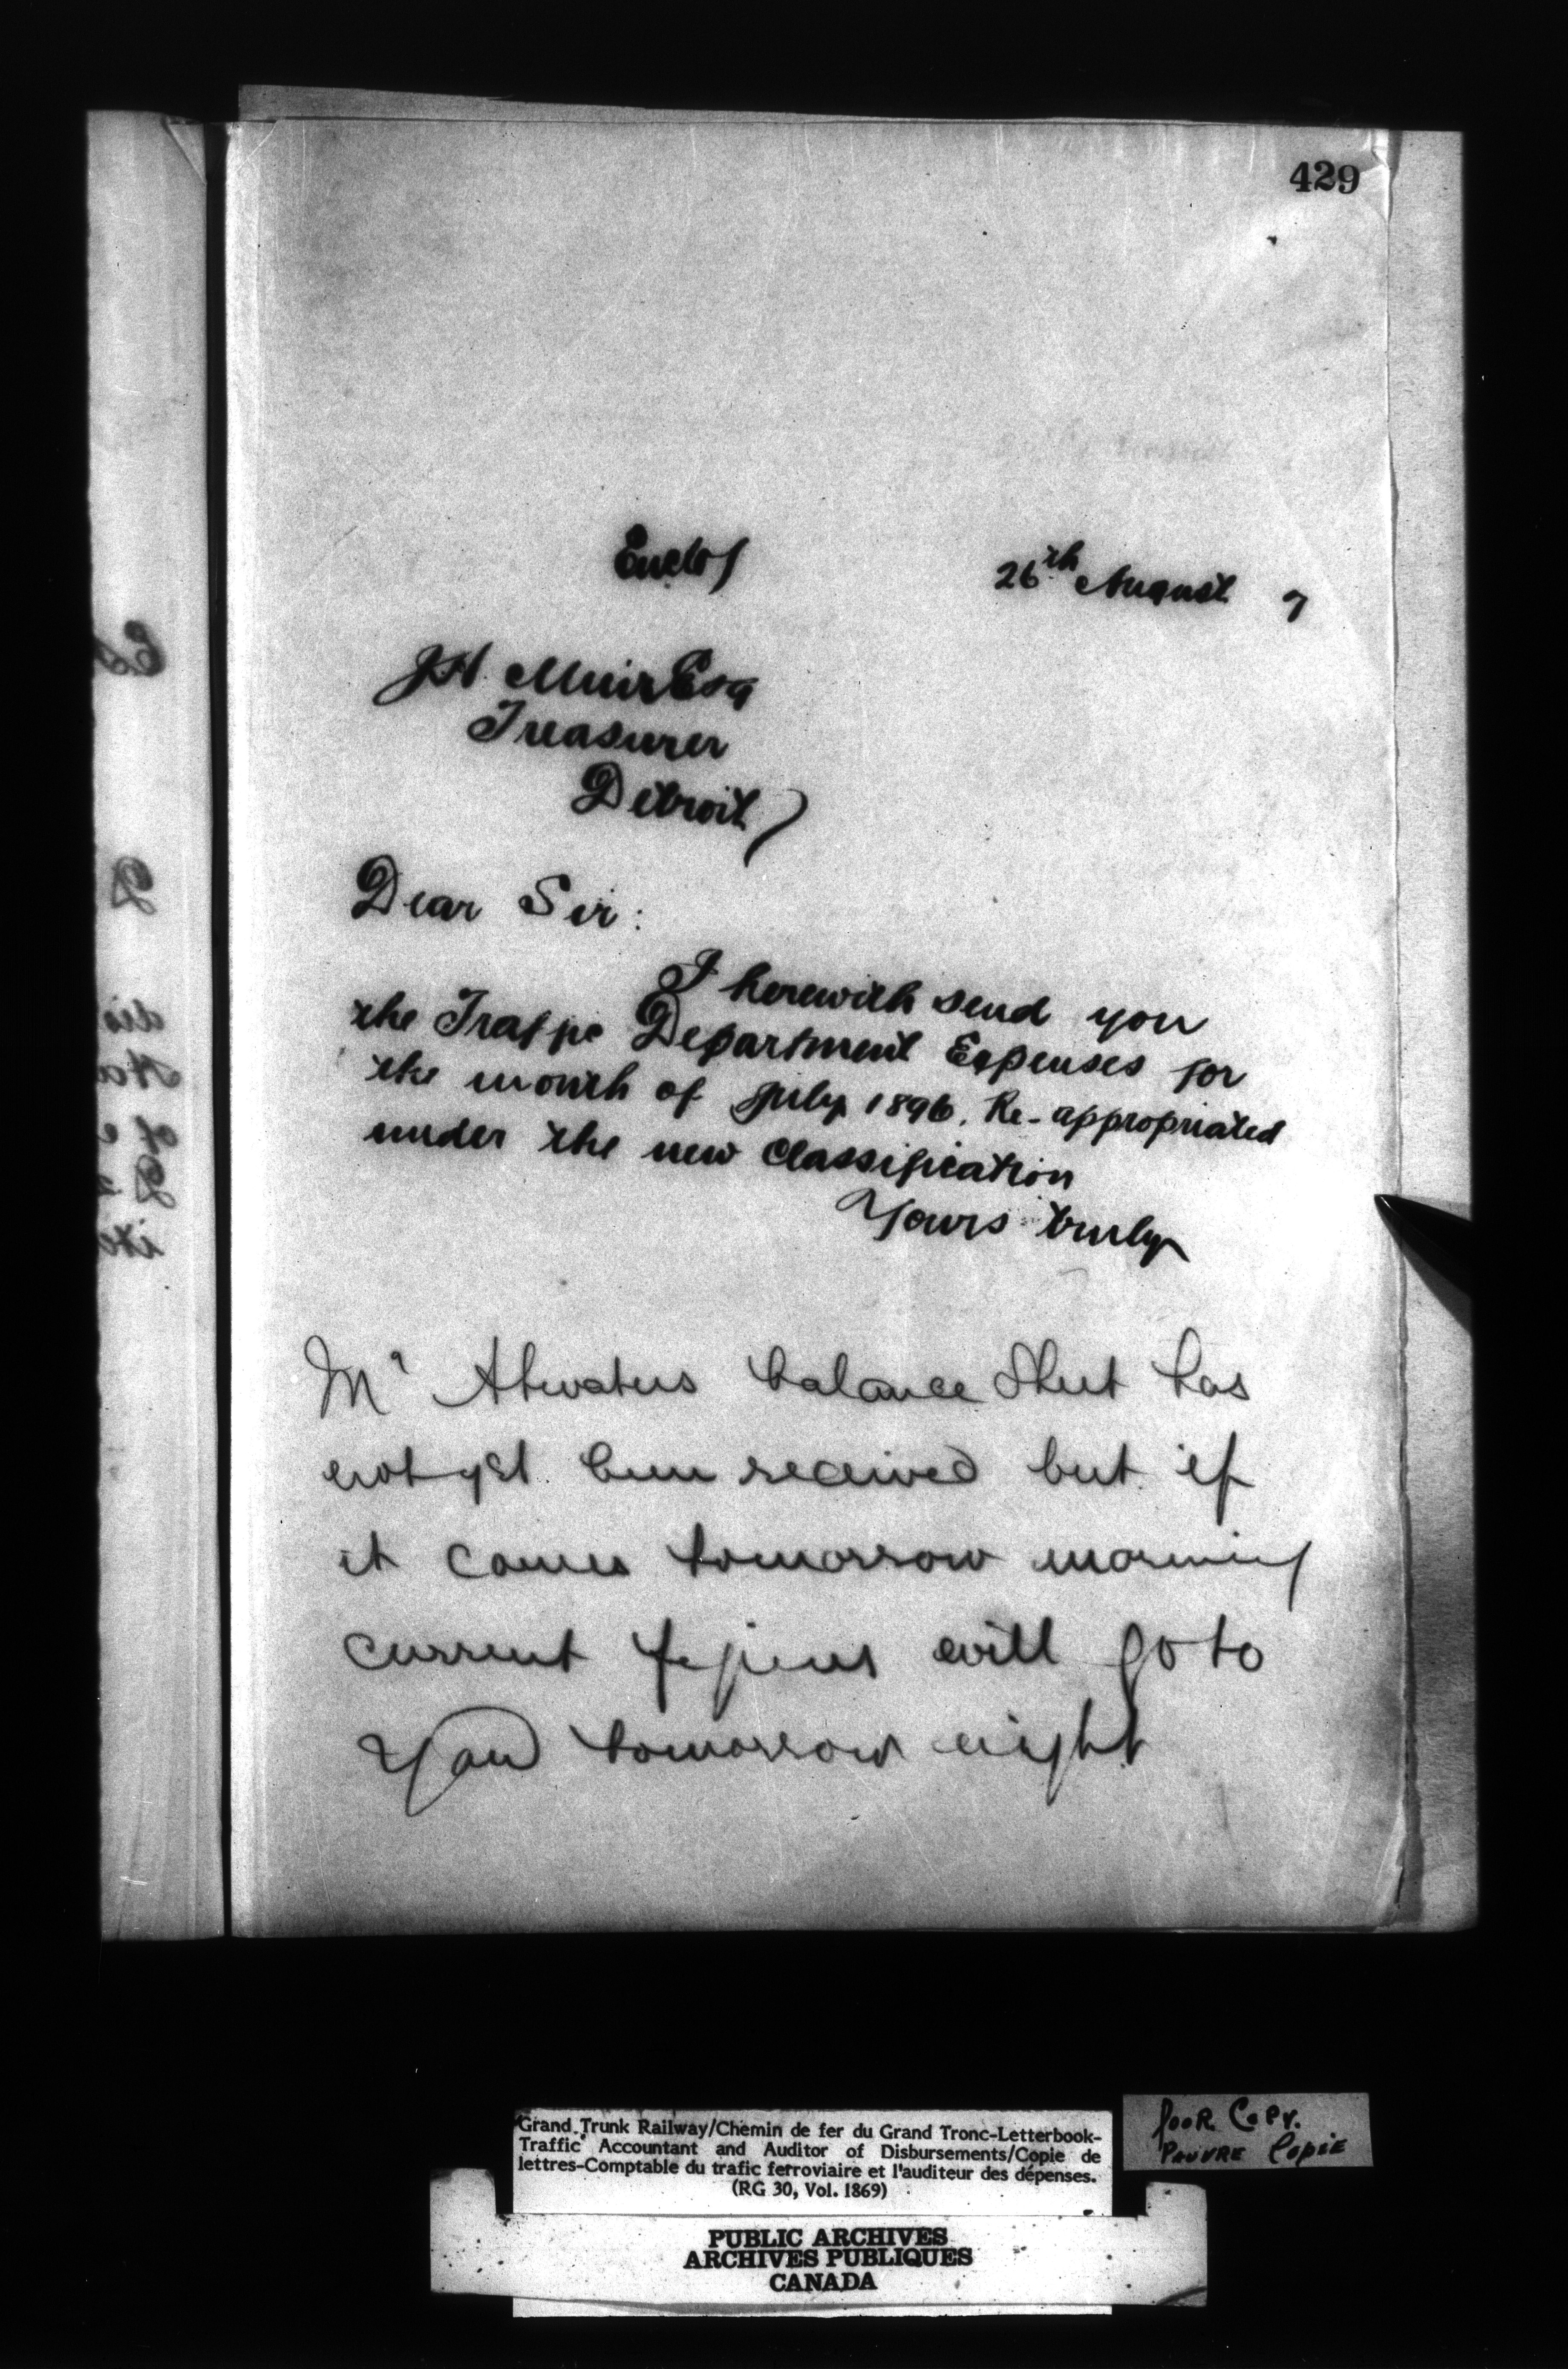 429
Enclos
26th August 7
J H. Muir Esq
Treasurer
Detroit
Dear Sir:
I herewith send you
the Traffic Department Expenses for
the month of July 1896. Re-appropriated
under the new classification
Yours truly
Mr Atwaters balance Sheet has
not yet been received but if
it comes tomorrow morning
current figures will go to
You tomorrow night
Grand Trunk Railway/Chemin de fer du Grand Tronc-Letterbook-
Traffic Accountant and Auditor of Disbursements/Copie de
lettres-Comptable du trafic ferroviaire et l'auditeur des dépenses.
(RG 30, Vol. 1869)
POOR COPY.
PAUVRE COPIE
PUBLIC ARCHIVES
ARCHIVES PUBLIQUES
CANADA